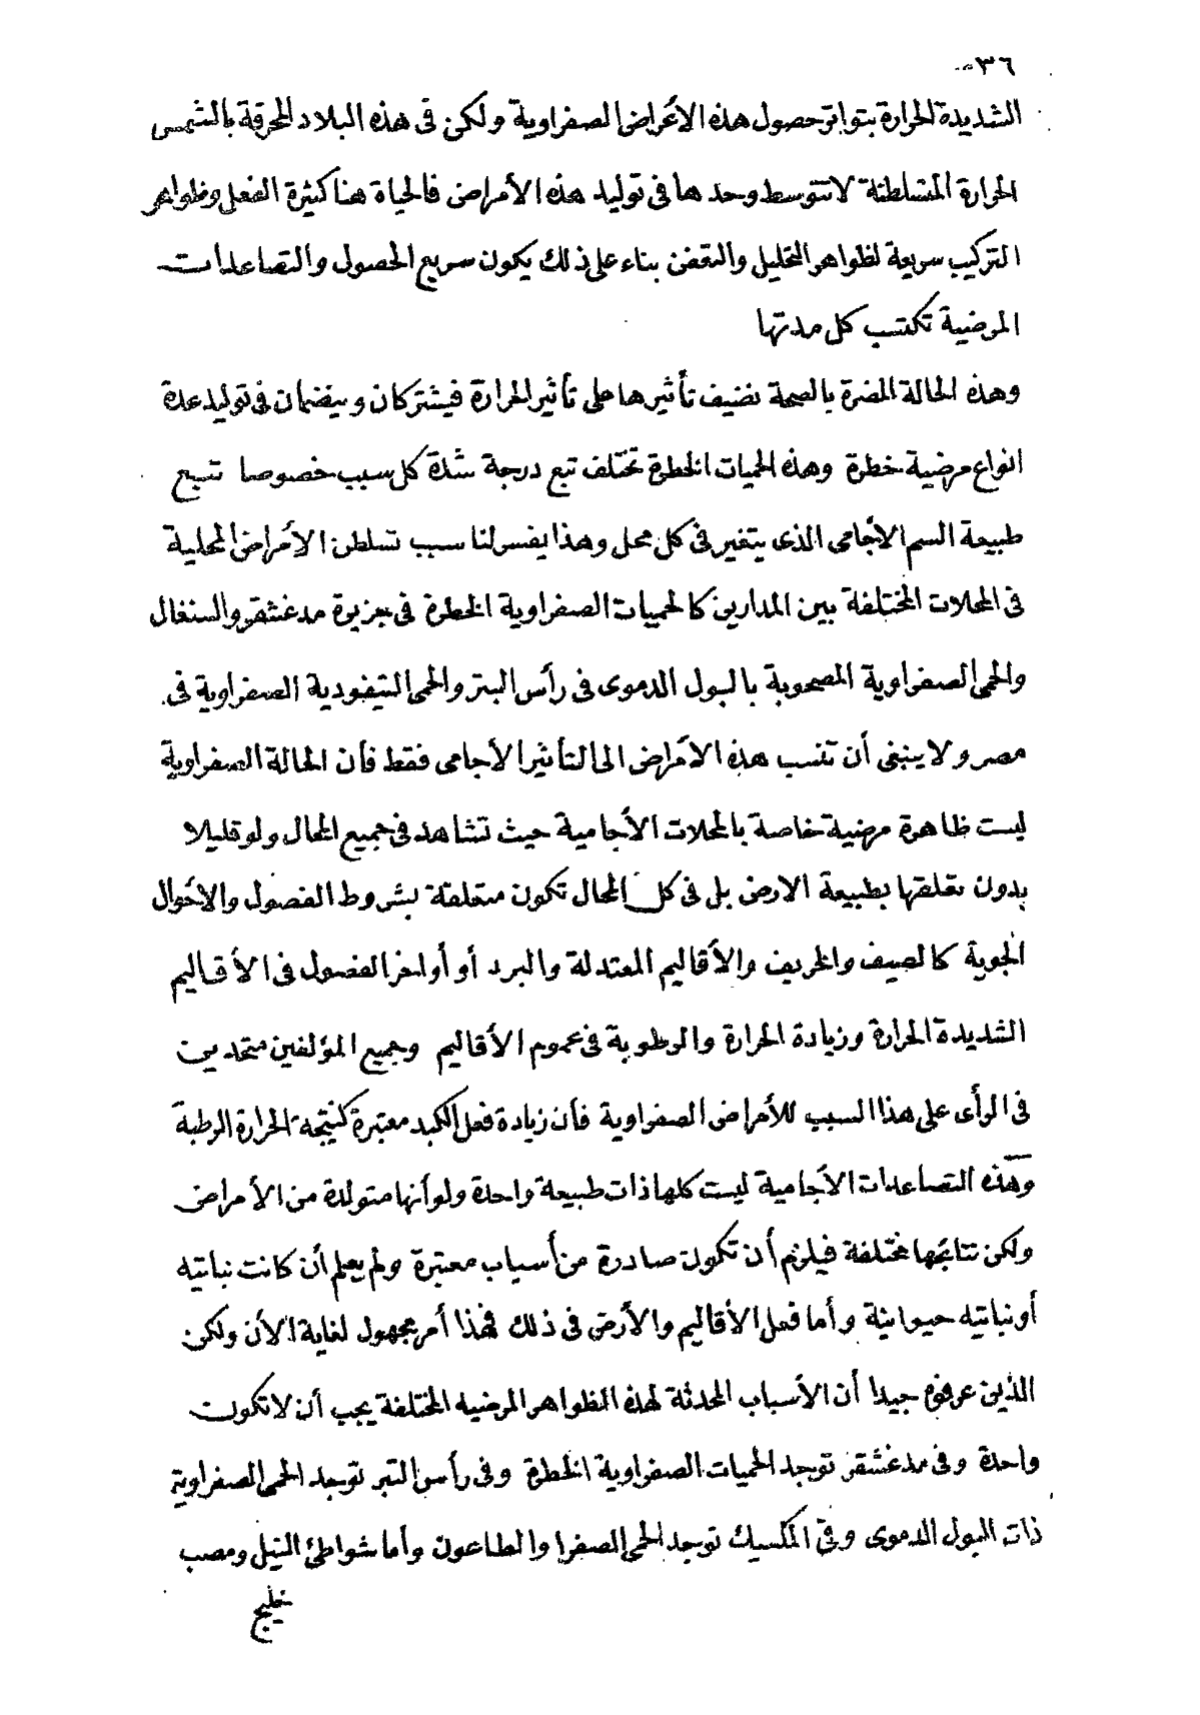 ٣٦
الشديدة الحرارة بتواتر حصول هذه الأعراض الصفراوية ولكن فى هذه البلاد المحرقة بالشمس
الحرارة المتسلطنة لاتتوسط وحدها فى توليد هذه الأمراض فالحياة هنا كثيرة الفعل وظواهر
التركيب سريعة لظواهر التحليل والتعفن بناء على ذلك يكون سريع الحصول والتصاعدات
المرضية تكتسب كل مدتها
وهذه الحالة المضرة بالصحة تضيف تأثيرها على تأثير الحرارة فيشتركان وينضمان فى توليد عدة
انواع مرضية خطرة وهذه الحميات الخطرة تختلف تبع درجة شدة كل سبب خصوصا تتبع
طبيعة السم الأجامى الذى يتغير فى كل محل وهذا يفسر لنا سبب تسلطن الأمراض المحلية
فى المحلات المختلفة بين المدارين كالحميات الصفراوية الخطرة فى جزيرة مدغشقر والسنغال
والحمى الصفراوية المصحوبة بالبول الدموى فى رأس البتر والحمى التيفودية الصفراوية فى
مصر ولا ينبغى أن تنسب هذه الأمراض الى التأثير الأجامى فقط فأن الحالة الصفراوية
ليست ظاهرة مرضية خاصة بالمحلات الأجامية حيث تشاهد فى جميع المحال ولو قليلا
بدون تعلقها بطبيعة الارض بل فى كل المحال تكون متعلقة بشروط الفصول والأحوال
الجوية كالصيف والخريف والأقاليم المعتدلة والبرد أو أواخر الفصول فى الأقاليم
الشديدة الحرارة وزيادة الحرارة والرطوبة فى عموم الأقاليم وجميع المؤلفين متحدين
فى الرأى على هذا السبب للأمراض الصفراوية فأن زيادة فعل الكبد معتبرة كنتيجة الحرارة الرطبة
وهذه التصاعدات الأجامية ليست كلها ذات طبيعة واحدة ولو أنها متولدة من الأمراض
ولكن نتائجها مختلفة فيلزم أن تكون صادرة من أسباب معتبرة ولم يعلم أن كانت نباتيه
أو نباتيه حيوانية وأما فعل الأقاليم والأرض فى ذلك فهذا أمر مجهول لغاية الأن ولكن
الذين عرفوه جيدا أن الأسباب المحدثة لهذه الظواهر المرضيه المختلفة يجب أن لا تكون
واحدة وفى مدغشقر توجد الحميات الصفراوية الخطرة وفى رأس التبر توجد الحمى الصفراوية
ذات البول الدموى وفى المكسيك توجد الحمى الصفرا والطاعون وأما شواطئ النيل ومصب
خليج